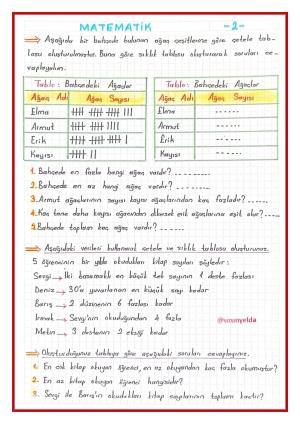 MATEMATİK -2-
Aşağıda bir bahçede bulunan ağaç çeşitlerine göre çetele tab-
losu oluşturulmuştur. Buna göre sıklık tablosu oluşturarak soruları ce-
vaplayalım.
Tablo: Bahçedeki Ağaçlar
Ağaç Adı Ağaç Sayısı
Elma
Armut
Erik
Kayısı
Tablo: Bahçedeki Ağaçlar
Ağaç Adı Ağaç Sayısı
Elma ------
Armut ------
Erik ------
Kayısı ------
1. Bahçede en fazla hangi ağaç vardır?
2. Bahçede en az hangi ağaç vardır?
3. Armut ağaçlarının sayısı kayısı ağaçlarından kaç fazladır?
4. Kaç tane daha kayısı ağacından dikersek erik ağaçlarına eşit olur?
5. Bahçede toplam kaç ağaç vardır?
Aşağıdaki verileri kullanarak çetele ve sıklık tablosu oluşturunuz.
5 öğrencinin bir yılda okudukları kitap sayıları şöyledir:
Sevgi → İki basamaklı en küçük tek sayının 1 deste fazlası
Deniz → 30'a yuvarlanan en küçük sayı kadar
Barış → 2 düzinenin 6 fazlası kadar
Irmak → Sevgi'nin okuduğundan 4 fazla
Metin → 3 destenin 2 eksiği kadar
@uzumyelda
Oluşturduğunuz tabloya göre aşağıdaki soruları cevaplayınız.
1. En çok kitap okuyan öğrenci, en az okuyandan kaç fazla okumuştur?
2. En az kitap okuyan öğrenci hangisidir?
3. Sevgi ile Barış'ın okudukları kitap sayılarının toplamı kaçtır?